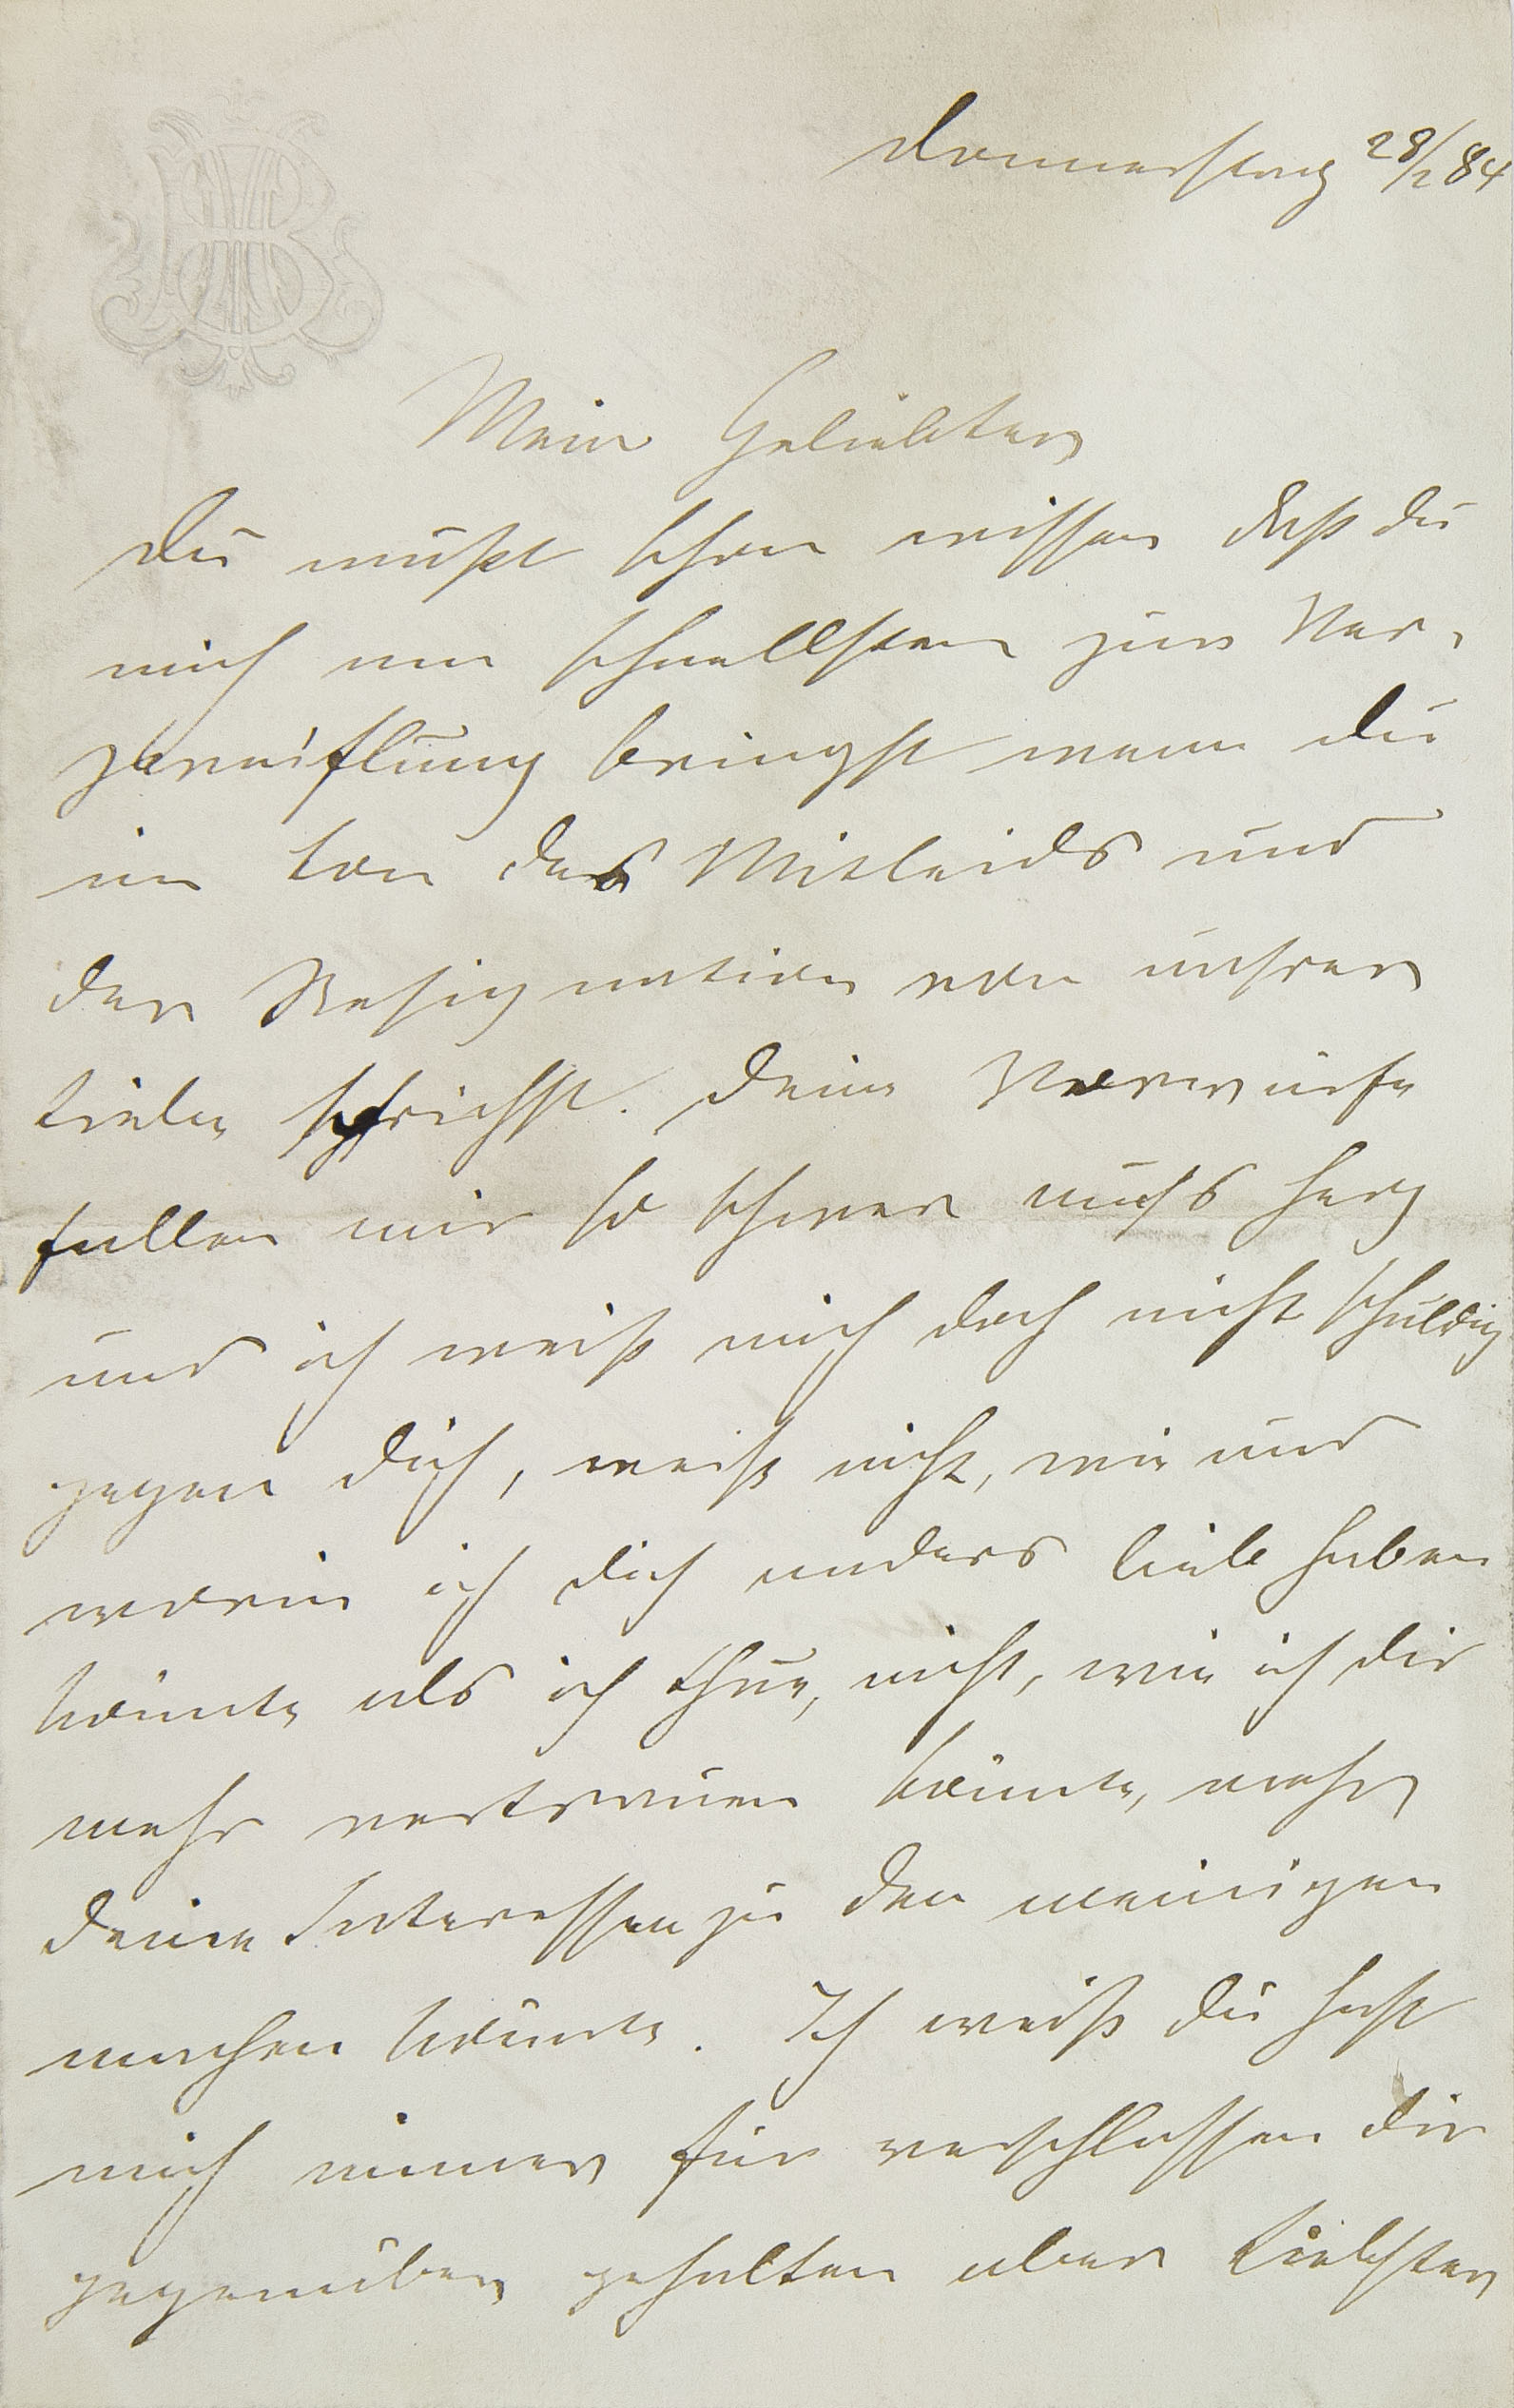 MB
Donnerstag 28/2 84
Mein Geliebter
Du mußt schon wissen daß du
mich am schnellsten zur Ver-
zweiflung bringst wenn du
im Ton des Mitleids und
der Resignation von unsrer
Liebe sprichst. Deine Vorwürfe
fallen mir so schwer aufs Herz
und ich weiß mich doch nicht schuldig
gegen dich, weiß nicht, wie und
worin ich dich anders lieb haben
könnte als ich thue, nicht, wie ich dir
mehr vertrauen könnte, mehr
deine Interessen zu den meinigen
machen könnte. Ich weiß du hast
mich immer für verschlossen dir
gegenüber gehalten aber Liebster